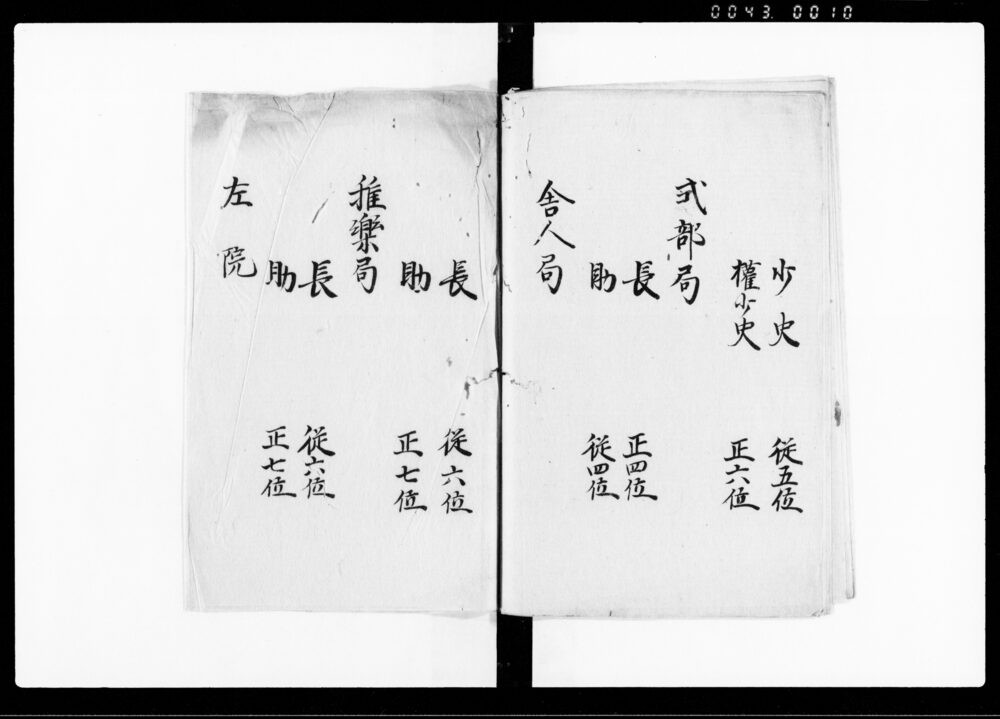 0043.0010
少史 従五位
権少史 正六位
式部局
長 正四位
助 従四位
舎人局
長 従六位
助 正七位
雅樂局
長 従六位
助 正七位
左院